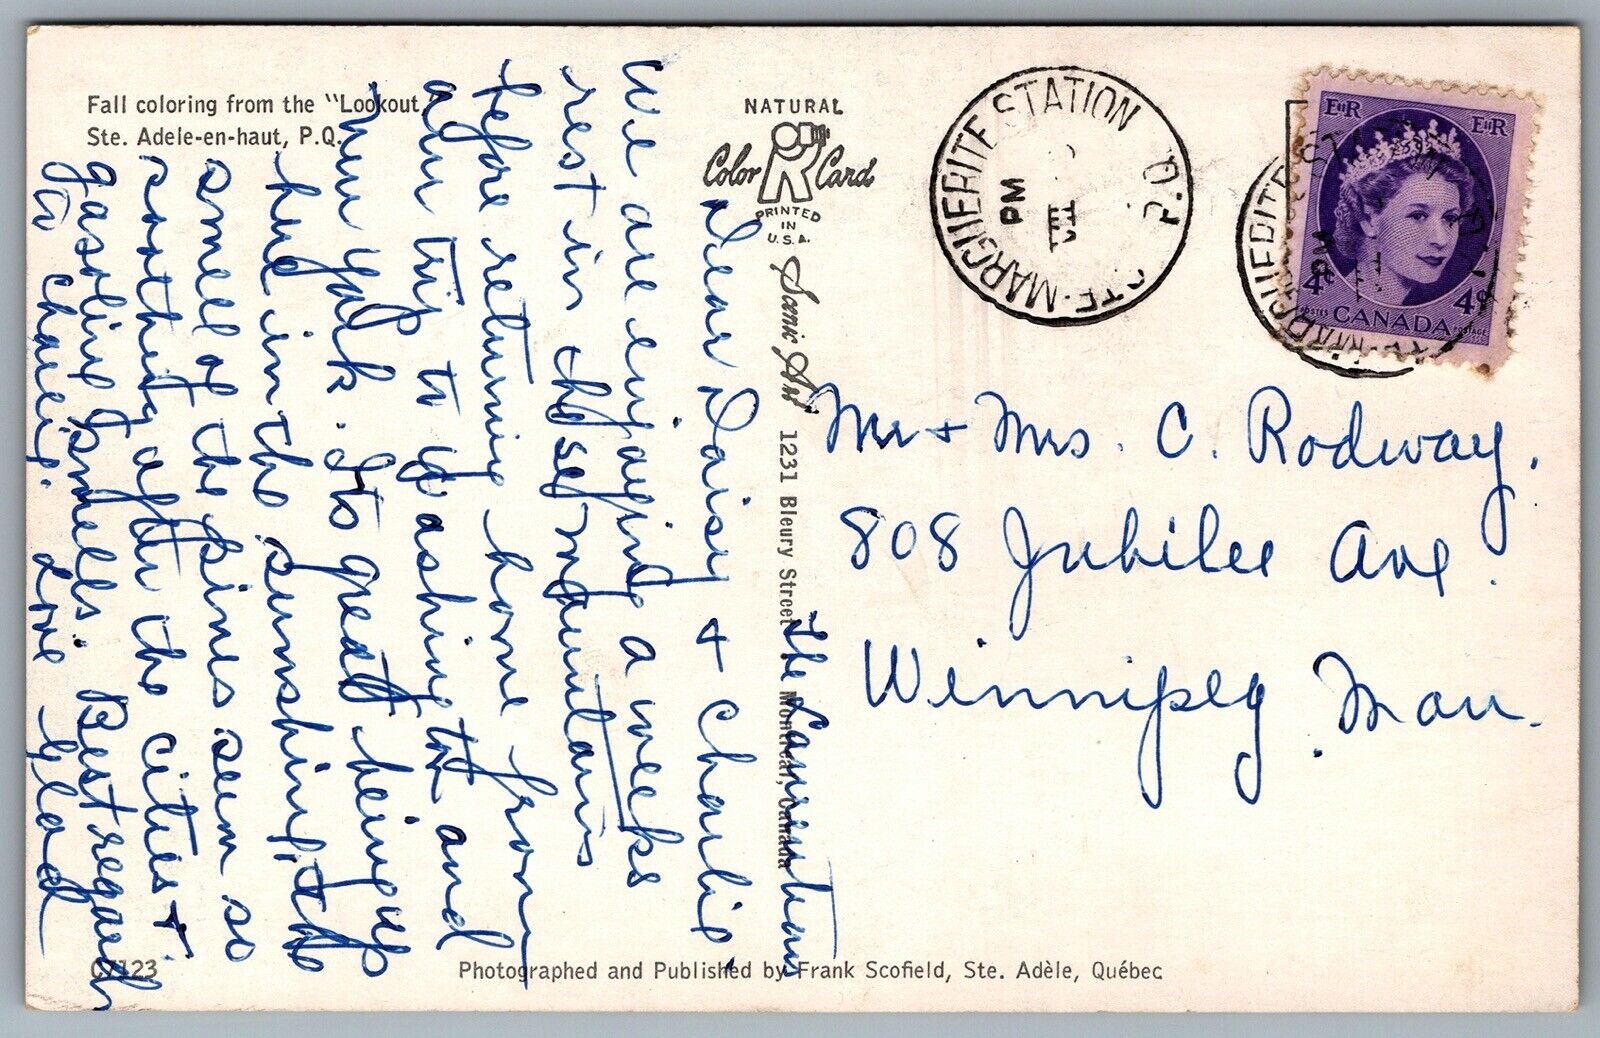 Fall coloring from the "Lookout,"
Ste. Adele-en-haut, P.Q.
NATURAL
Color Card
PRINTED
IN
U.S.A.
Scenic Art 1231 Bleury Street Montreal, Canada
STE-MARGUERITE STATION P.Q.
PM
VIII
EIIR EIIR
4¢ 4¢
POSTES CANADA POSTAGE
The Laurentians
Dear Daisy & Charlie
We are enjoying a weeks
rest in these mountains
before returning home from
our trip to Washington and
New York. Its great being up
here in the sunshine, the
smell of the pines seem so
soothing after the cities &
gasoline smells. Best regards
to Charlie. Love Glad
Mr & Mrs. C. Rodway.
808 Jubilee Ave.
Winnipeg Man.
C7123
Photographed and Published by Frank Scofield, Ste. Adèle, Québec